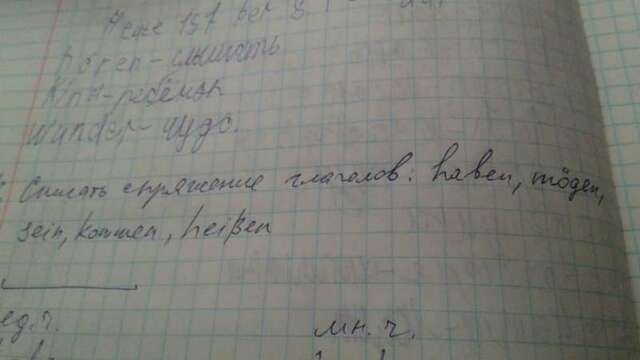 hören - слышать
Kind - ребёнок
Wunder - чудо.
Списать спряжение глаголов: haben, mögen,
sein, kommen, heißen
ед.ч.
мн.ч.